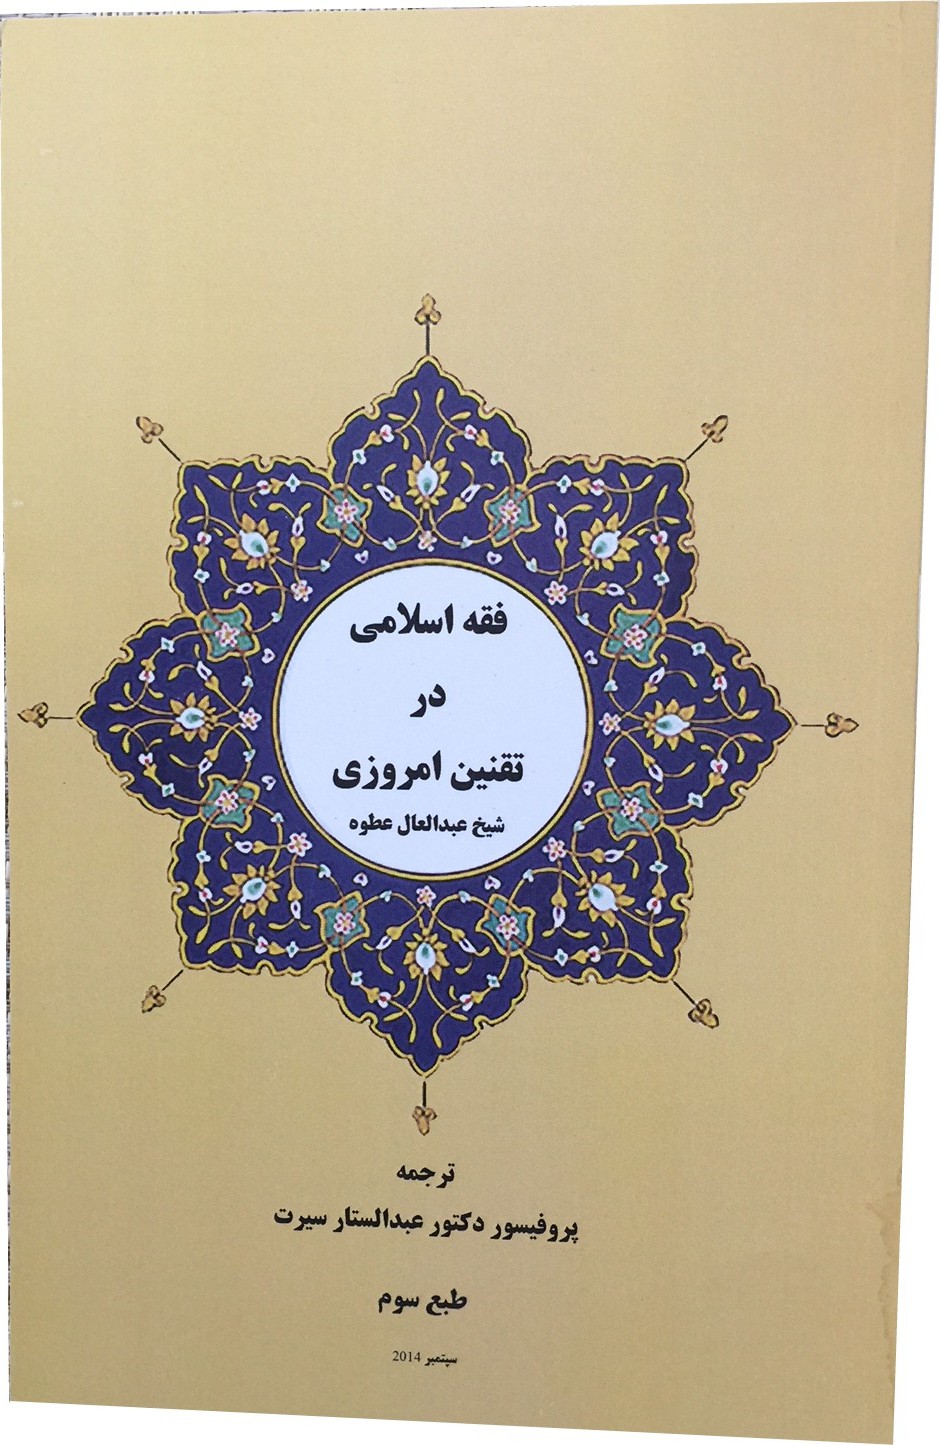 فقه اسلامی
در
تقنین امروزی
شیخ عبدالعال عطوه
ترجمه
پروفیسور دکتور عبدالستار سیرت
طبع سوم
سپتمبر 2014